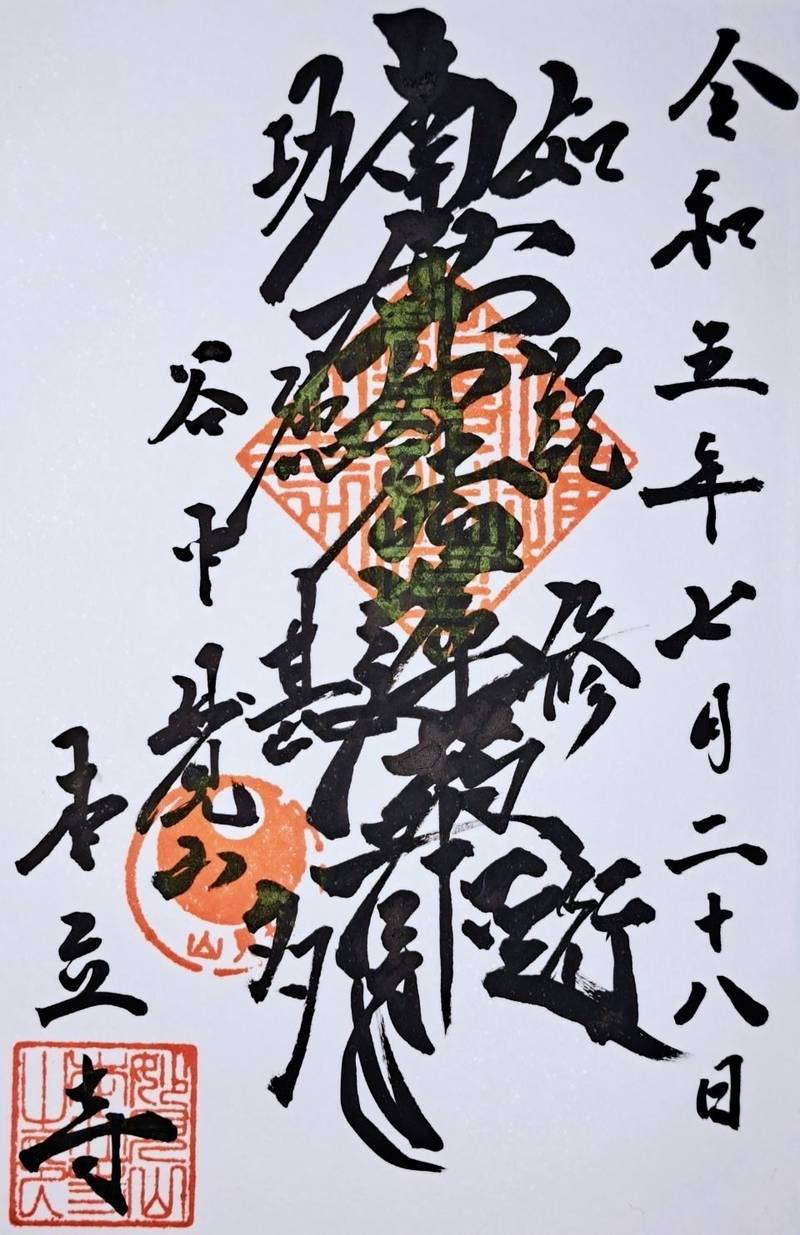 令和五年七月二十八日
如説修行
南無妙法蓮華経
功徳甚多
谷中
本立寺